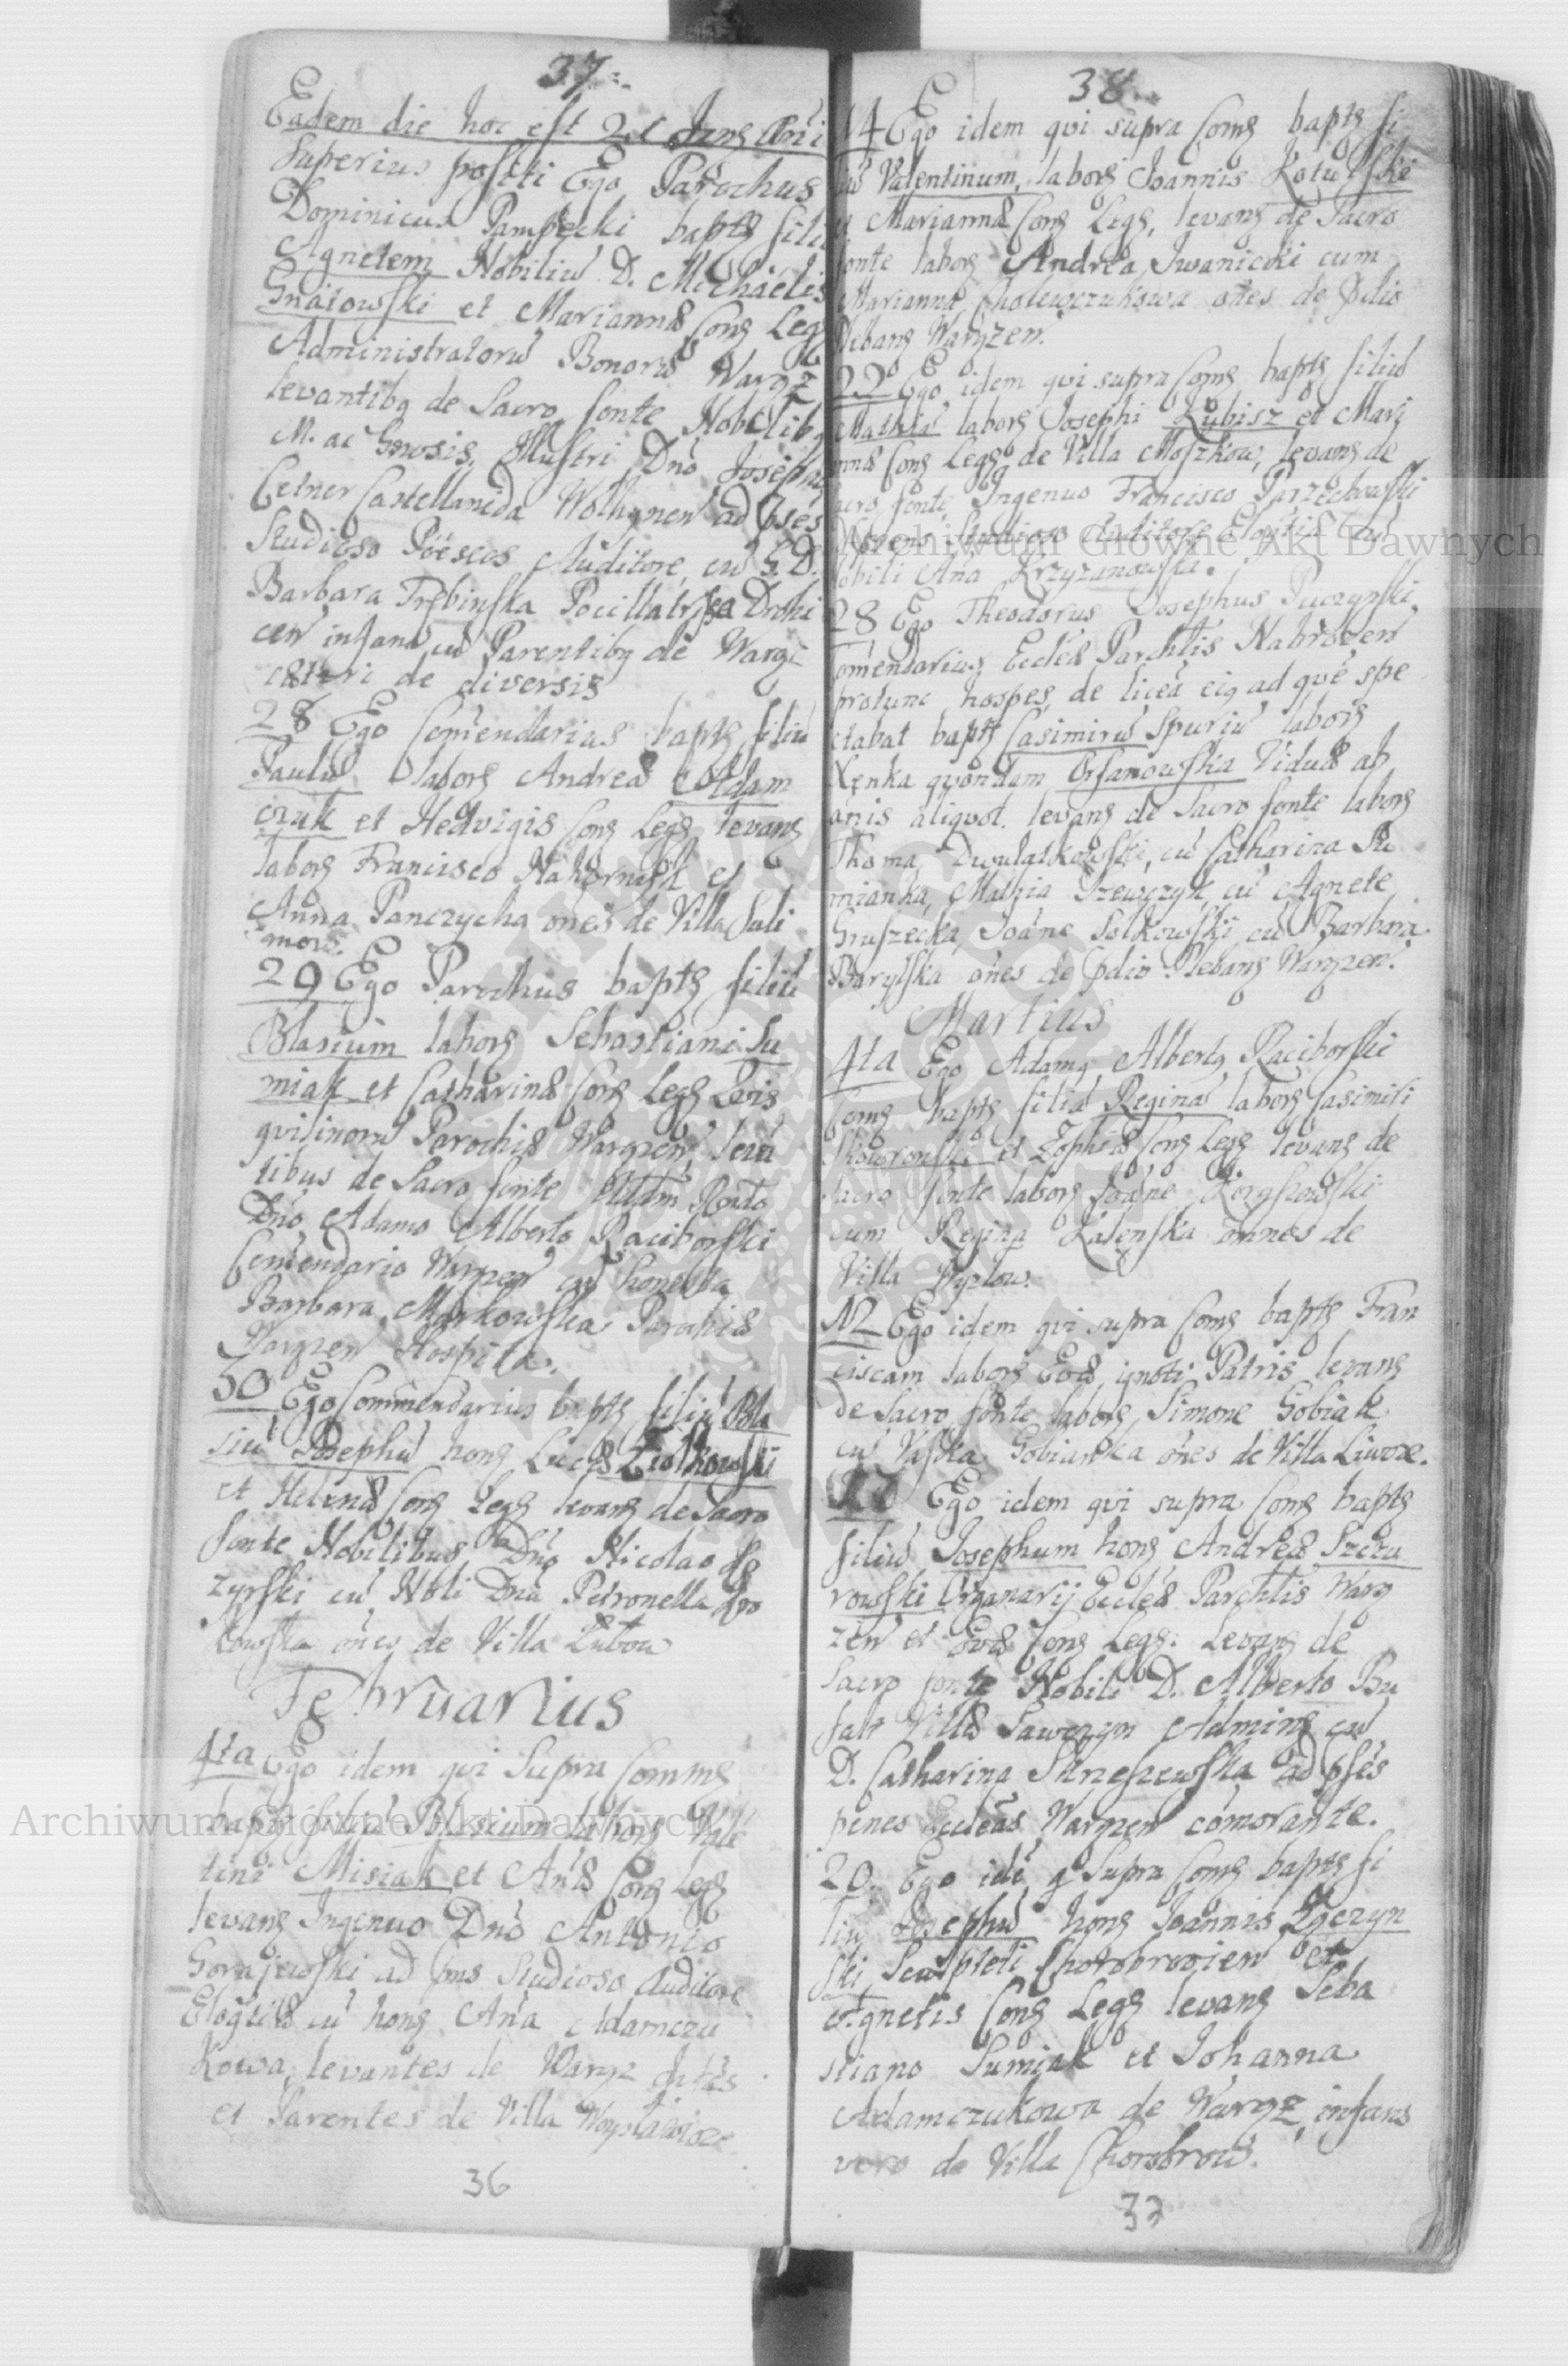 37.
Eadem die hoc est 21 Jans Ani
Superius positi Ego Parochus
Dominicus Pampecki bapts filiã
Agnetem Nobiliũ D. Michaelis
Gnatowski et Mariannæ Cons Legs
Administratorũ Bonorũ Waręz
levantibq de Sacro fonte Nobilibq
M. ac Gnosis, Illustri Dno Josepho
Cetner Castellanida Wolhynen ad pses
Studioso Poëseos Auditore, cũ G. D.
Barbara Trębinska Pocillatrissa Drohi
cen infans cũ Parentibq de Waręz
cæteri de diversis
28 Ego Comendarius bapts filiũ
Paulũ labors Andreæ Adam
czuk et Hedvigis Cons Legs levans
labors Francisco Nahorniak et
Anna Panczycha ones de Villa Suli
mow.
29 Ego Parochus bapts filiũ
Blasium labors Sebastiani Su
miak et Catharinæ Cons Legs
quilinorũ Parochiæ Waręzen levã
tibus de Sacro fonte Adm Rndo
Dno Adamo Alberto Raciborski
Comendario Waręzen cũ honesta
Barbara Markowska Parochiæ
Waręzen Hospita.
30 Ego Commendarius bapts filiũ Bla
siũ Josephũ hons Lucæ Ziolkowski
et Helenæ Cons Legs levans de Sacro
fonte Nobilibus Dno Nicolao
zyrski cũ Nobli Dna Petronella
kowska ones de Villa Lubow
Februarius
4ta Ego idem qui Supra Comms
bapts filiũ Blasium labors Vale
tini Misiak et Anæ Cons Legs
levans Ingenuo Dno Antonio
Gorajewski ad pns Studioso Auditore
Eloqtiæ cũ hons Ana Adamczu
kowa, levantes de Waręz
et Parentes de Villa
36
38.
14 Ego idem qui supra Coms bapts fi
liũ Valentinum, labors Joannis Kotulski
et Mariannæ Cons Legs, levans de Sacro
fonte labors Andrea Iwanicki cum
Marianna Cholewczukowa ones de pdio
Plebans Waręzen.
22 Ego idem qui supra Coms bapts filiũ
Mathiã labors Josephi Lubisz et Mari
annæ Cons Legs de Villa Moszkow, levans de
sacro fonte Ingenuo Francisco Parzechowski
Studioso Auditore Eloqtiæ cũ
Nobili Ana Krzyzanowska.
28 Ego Theodorus Josephus Puczynski
Comendarius Eccleæ Parchlis Nabrozen
protunc hospes, de liceã eiq ad quẽ spe
ctabat bapts Casimirũ Spuriũ labors
Xęnka quondam Orsanowska Viduæ ab
anis aliquot. levans de Sacro fonte labors
Thoma, cũ Catharina Su
mianka, Mathia Szewczyk, cũ Agnete
Gruszecka, Joãne Solkowski cũ Barbara
Barylska ones de pdio Plebans Waręzen.
Martius
4ta Ego Adamq Albertq Raciborski
Coms bapts filiã Reginã labors Casimiri
Skowronski et Zophiæ Cons Legs levans de
Sacro fonte labors Joãne
cum Regina Zalenska omnes de
Villa
12 Ego idem qui supra Coms bapts Fran
ciscam labors Evæ, ignoti Patris levans
de Sacro fonte labors Simone Gobiak
cũ Naska Gobianka ones de Villa Liwcze.
17 Ego idem qui supra Coms bapts
filiũ Josephum hons Andreæ Szczu
rowski Organarij Eccleæ Parchlis Waręz
zen et Evæ Cons Legs. Levans de
Sacro fonte Nobili D. Alberto Bu
falt Villæ Sawczyn Admins cũ
D. Catharina Strzeszewska ad pses
penes Eccleas Waręzen comorante.
20. Ego idẽ q Supra Coms bapts fi
liũ Josephũ hons Joannis Zgczyn
ski Sculpteti Chorobrovien et
Agnetis Cons Legs levans Seba
stiano Sumiak et Johanna
Adamczukowa de Waręz, infans
vero de Villa Chorobrow.